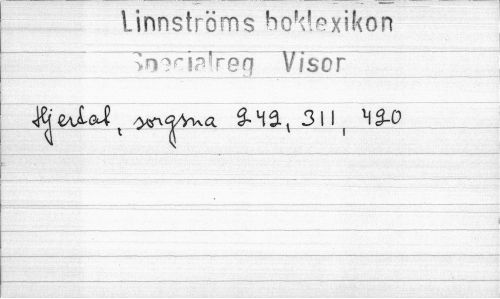 Linnströms boklexikon
Specialreg Visor
Hjertat, sorgsna 242, 311, 420